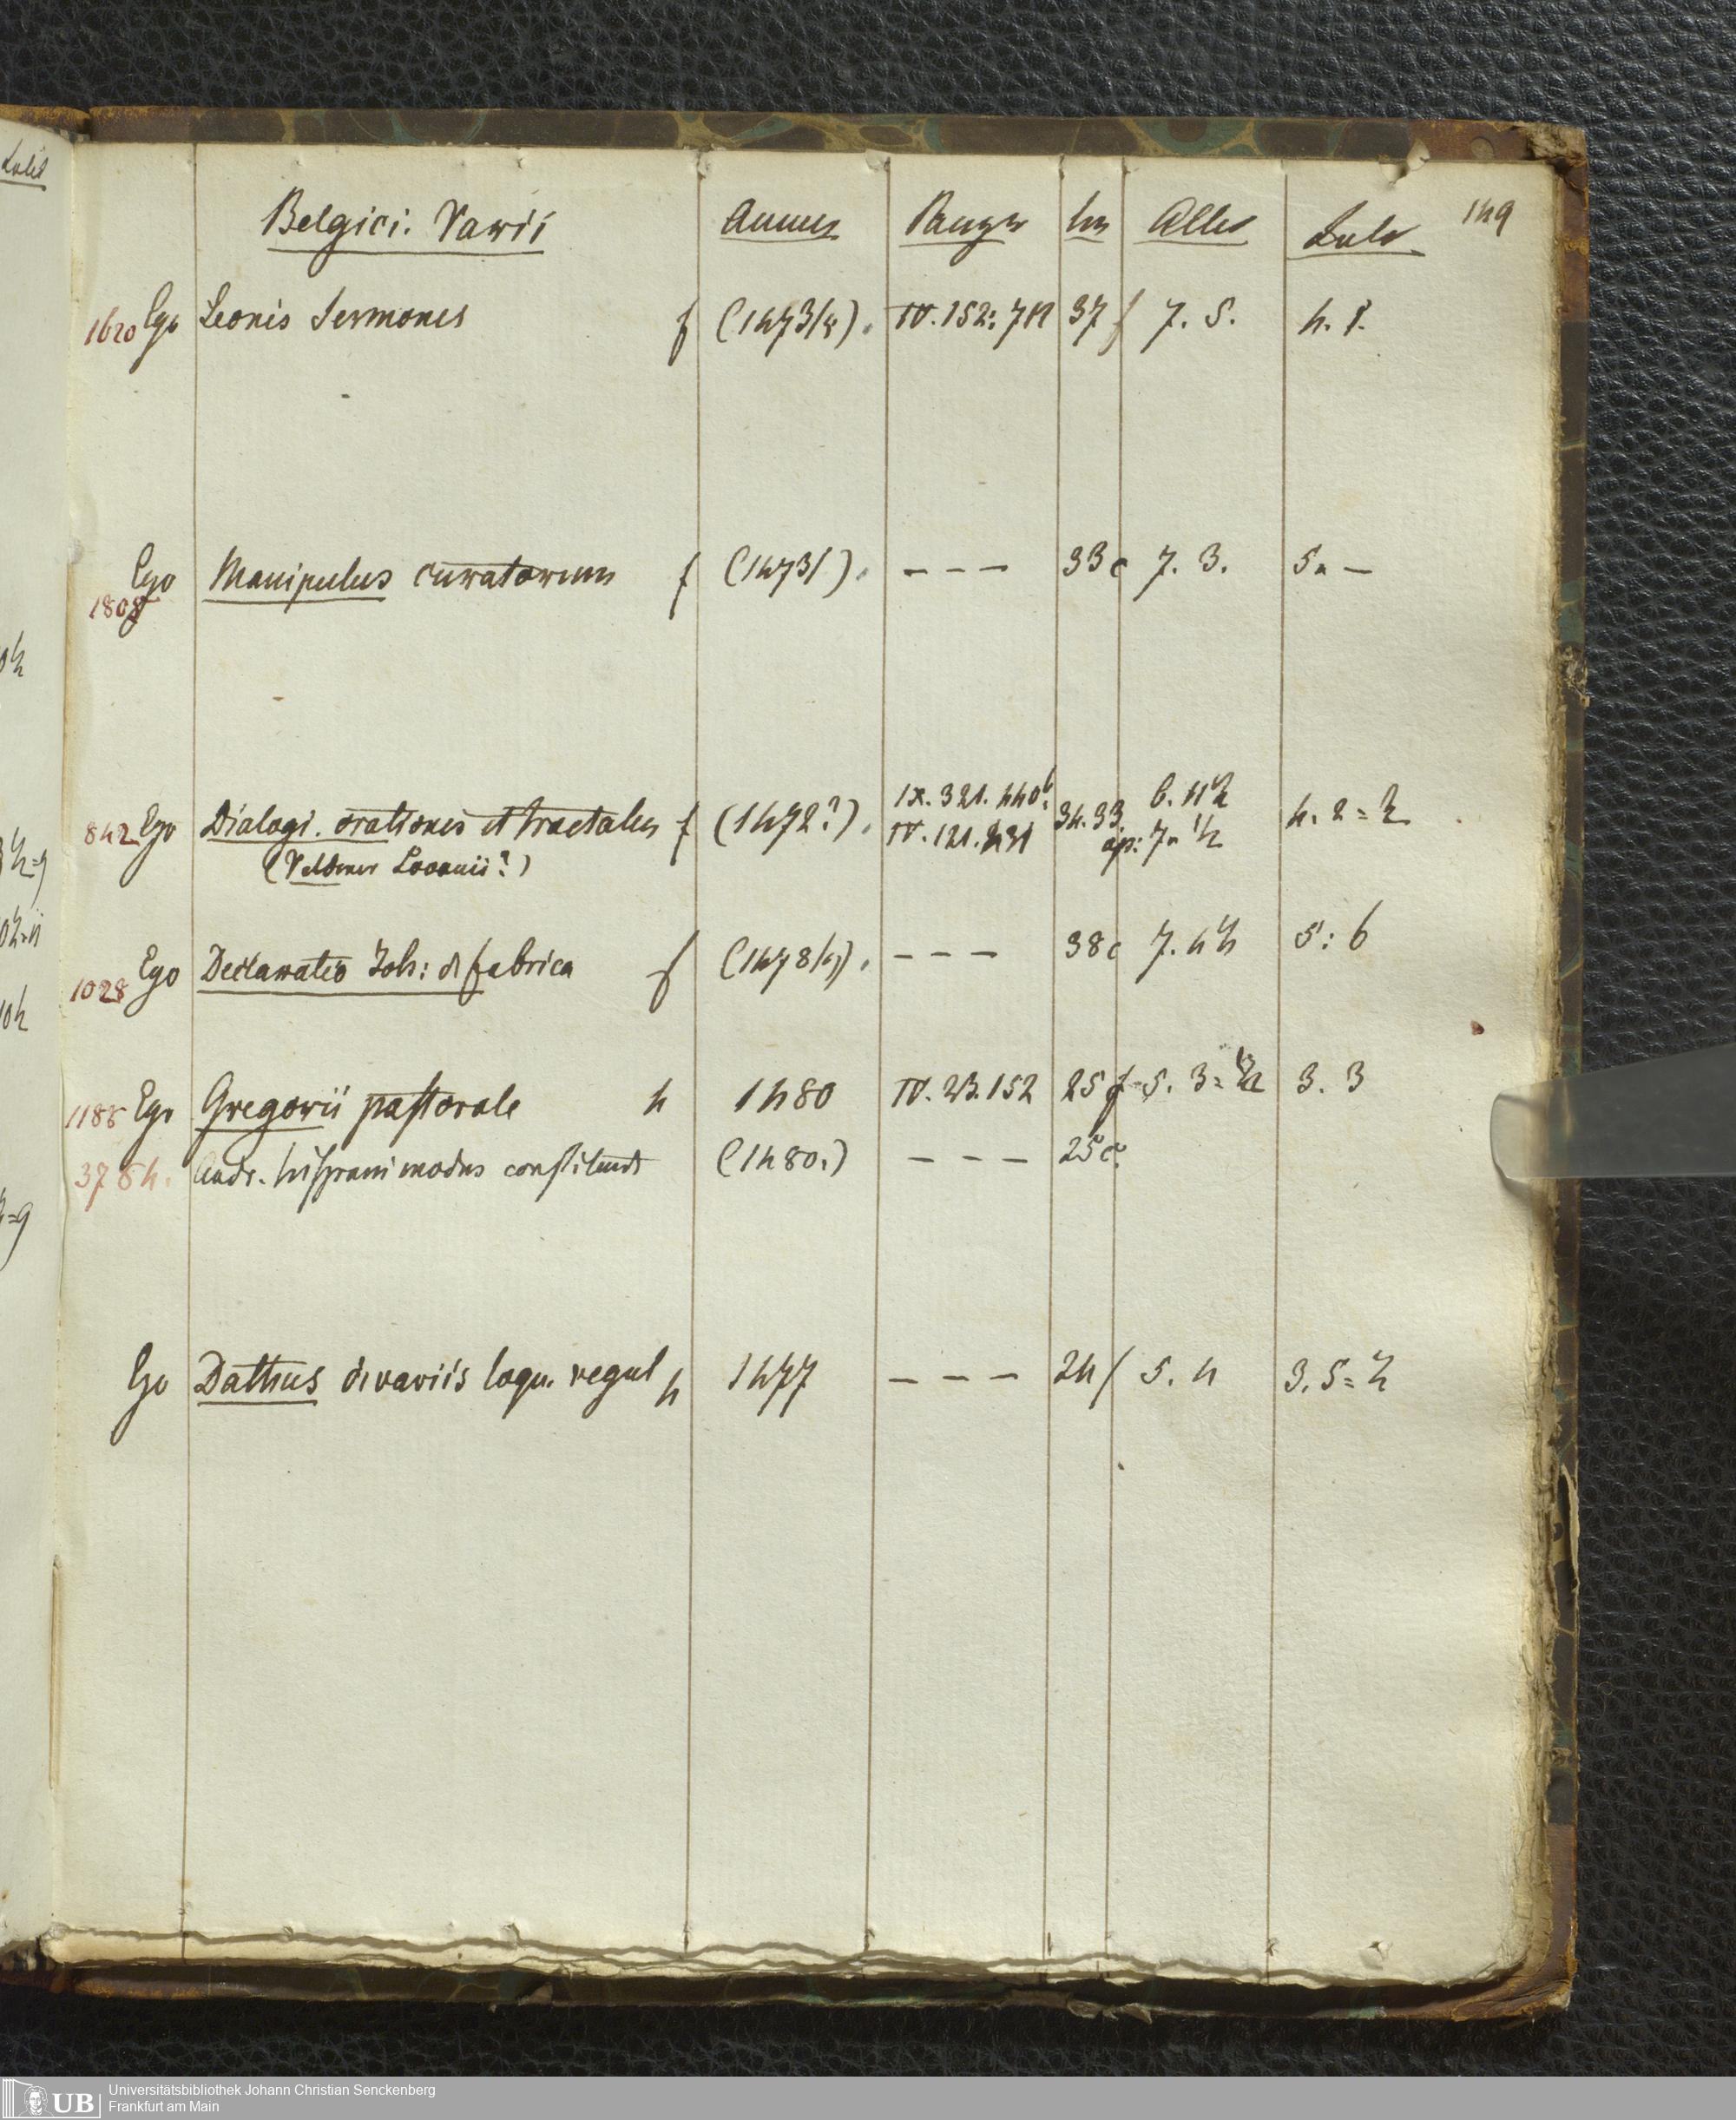 149
Belgici. Varii Annus Panzer lin Altit Latit
1620 Ego Leonis Sermones f (1473/4). IV. 152: 711 37 f 7. 5. 4. 1.
Ego Manipulus curatorum f (1473/). - - - 33 c 7. 3. 5. –
1808
IX. 321. 440 b. 6. 11½
842 Ego Dialogi. orationes et tractatus f (1472?). IV. 121. 431 34. 33 op: 7. ½ 4. 2=½
(Veldener Lovanii?)
1028 Ego Declamatio Joh: d fabrica f (1478/9). - - - 38 c 7. 4½ 5: 6
1188 Ego Gregorii pastorale 4 1480 IV. 23. 152 25 f 5. 3=½ 3. 3
3784. Andr. hispani modus confitendi (1480.) - - - 25 c.
Ego Dathus d variis loqu. regul 4 1477 - - - 24 f 5. 4 3. 5=½
UB
Universitätsbibliothek Johann Christian Senckenberg
Frankfurt am Main